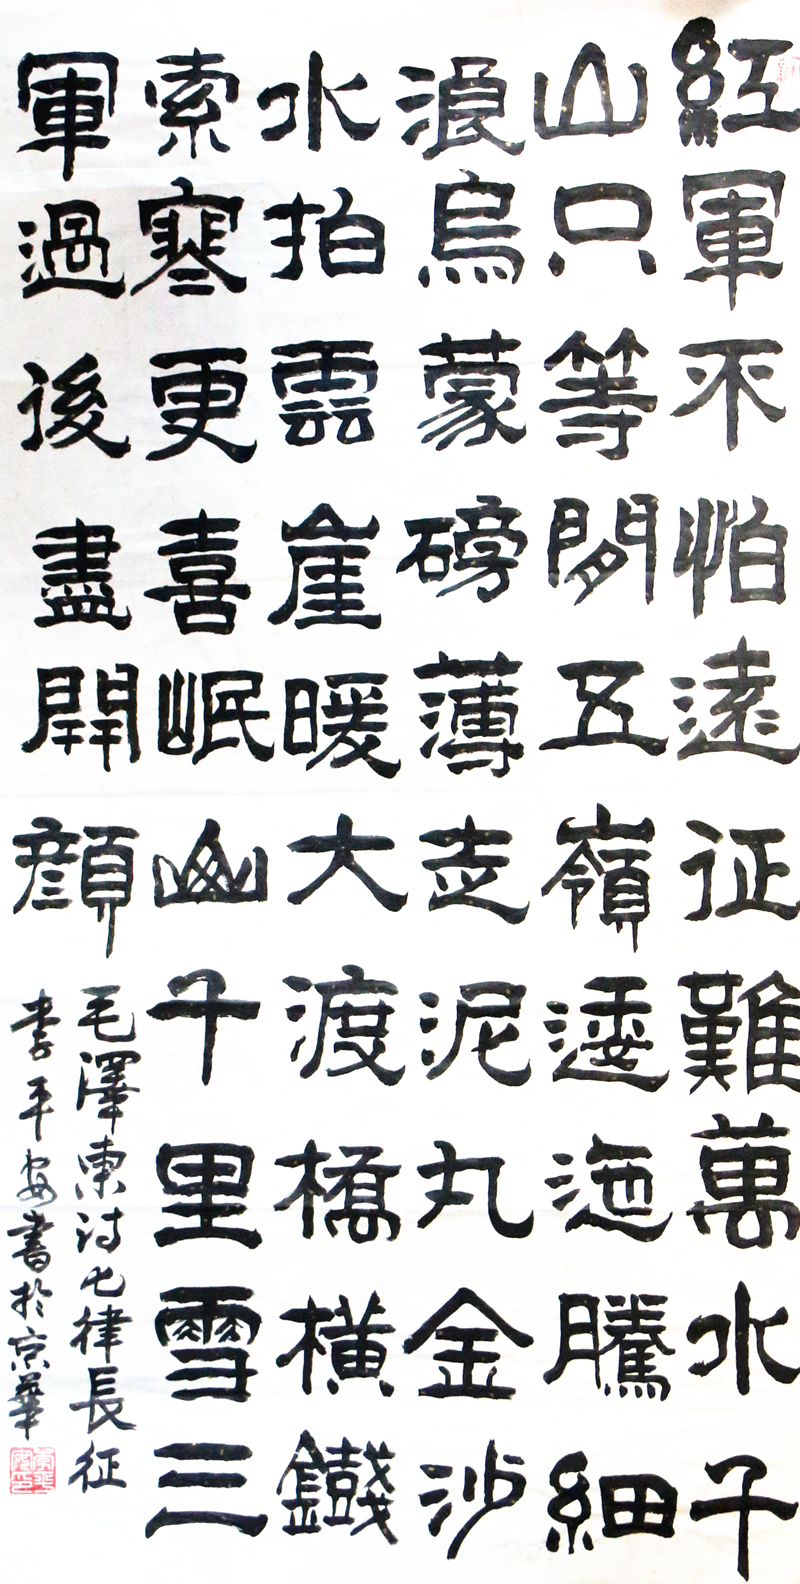 紅軍不怕遠征難萬水千
山只等閒五嶺逶迤騰細
浪烏蒙磅薄走泥丸金沙
水拍雲崖暖大渡橋橫鐵
索寒更喜岷山千里雪三
軍過後盡開顏
毛澤東詩七律長征
李平安書於京華